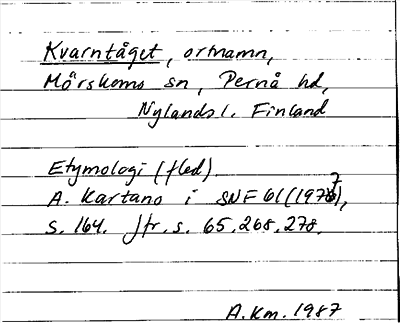 Kvarntåget, ortnamn,
Mörskoms sn, Pernå hd,
Nylands l. Finland
Etymologi (fled).
A. Kartano i SNF 61 (1977),
s. 164. Jfr. s. 65, 268, 278.
A.Km. 1987